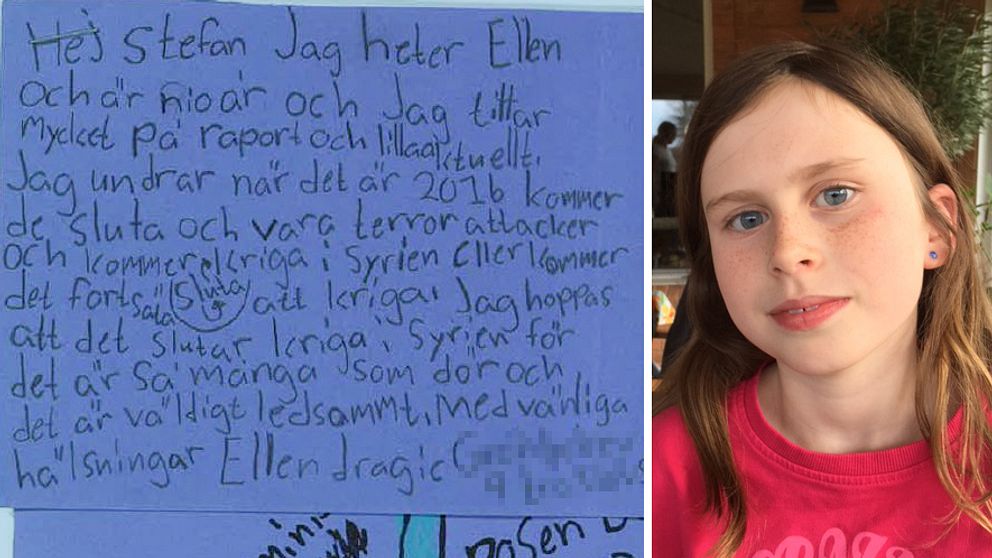 Hej Stefan Jag heter Ellen
och är nio år och Jag tittar
mycket på raport och lilla aktuellt.
Jag undrar när det är 2016 kommer
de sluta och vara terror attacker
och kommer kriga i Syrien Eller kommer
det fortsäta Sluta att kriga. Jag hoppas
att det slutar kriga i Syrien för
det är så många som dör och
det är väldigt ledsammt. Med vänliga
hälsningar Ellen dragic